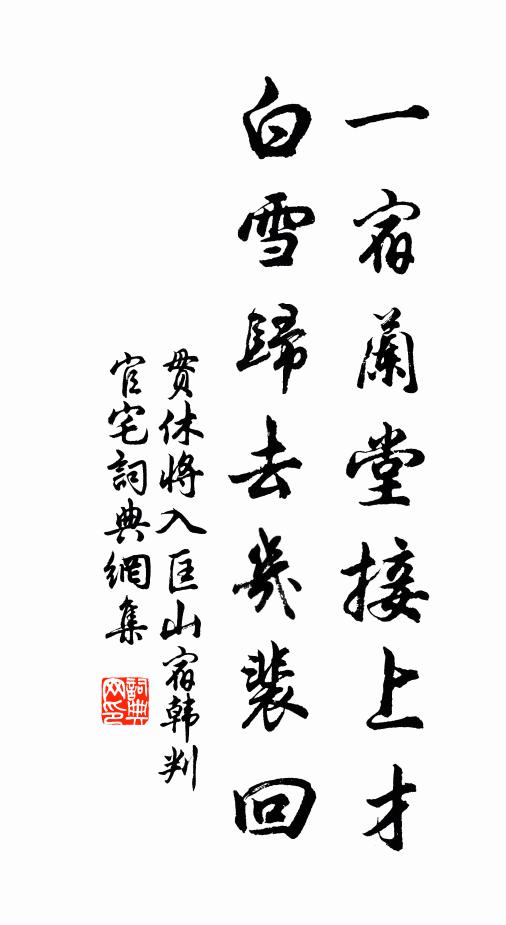 一宿蘭堂接上才
白雪歸去幾裴回
貫休將入匡山宿韓判
官宅詞典網集
詞典
网印